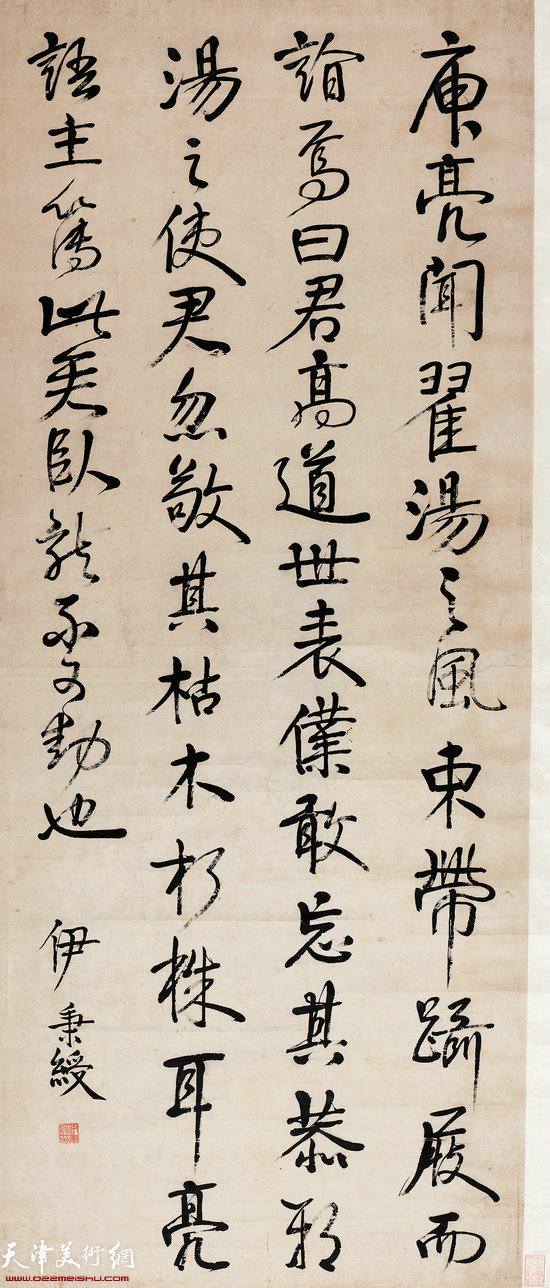 庾亮聞翟湯之風束帶躡屐而
詣焉曰君高道世表僕敢忘其恭邪
湯之使君忽敬其枯木朽株耳亮
語主簿此君臥龍不可動也
伊秉綬
天津美術網
www.022meishu.com